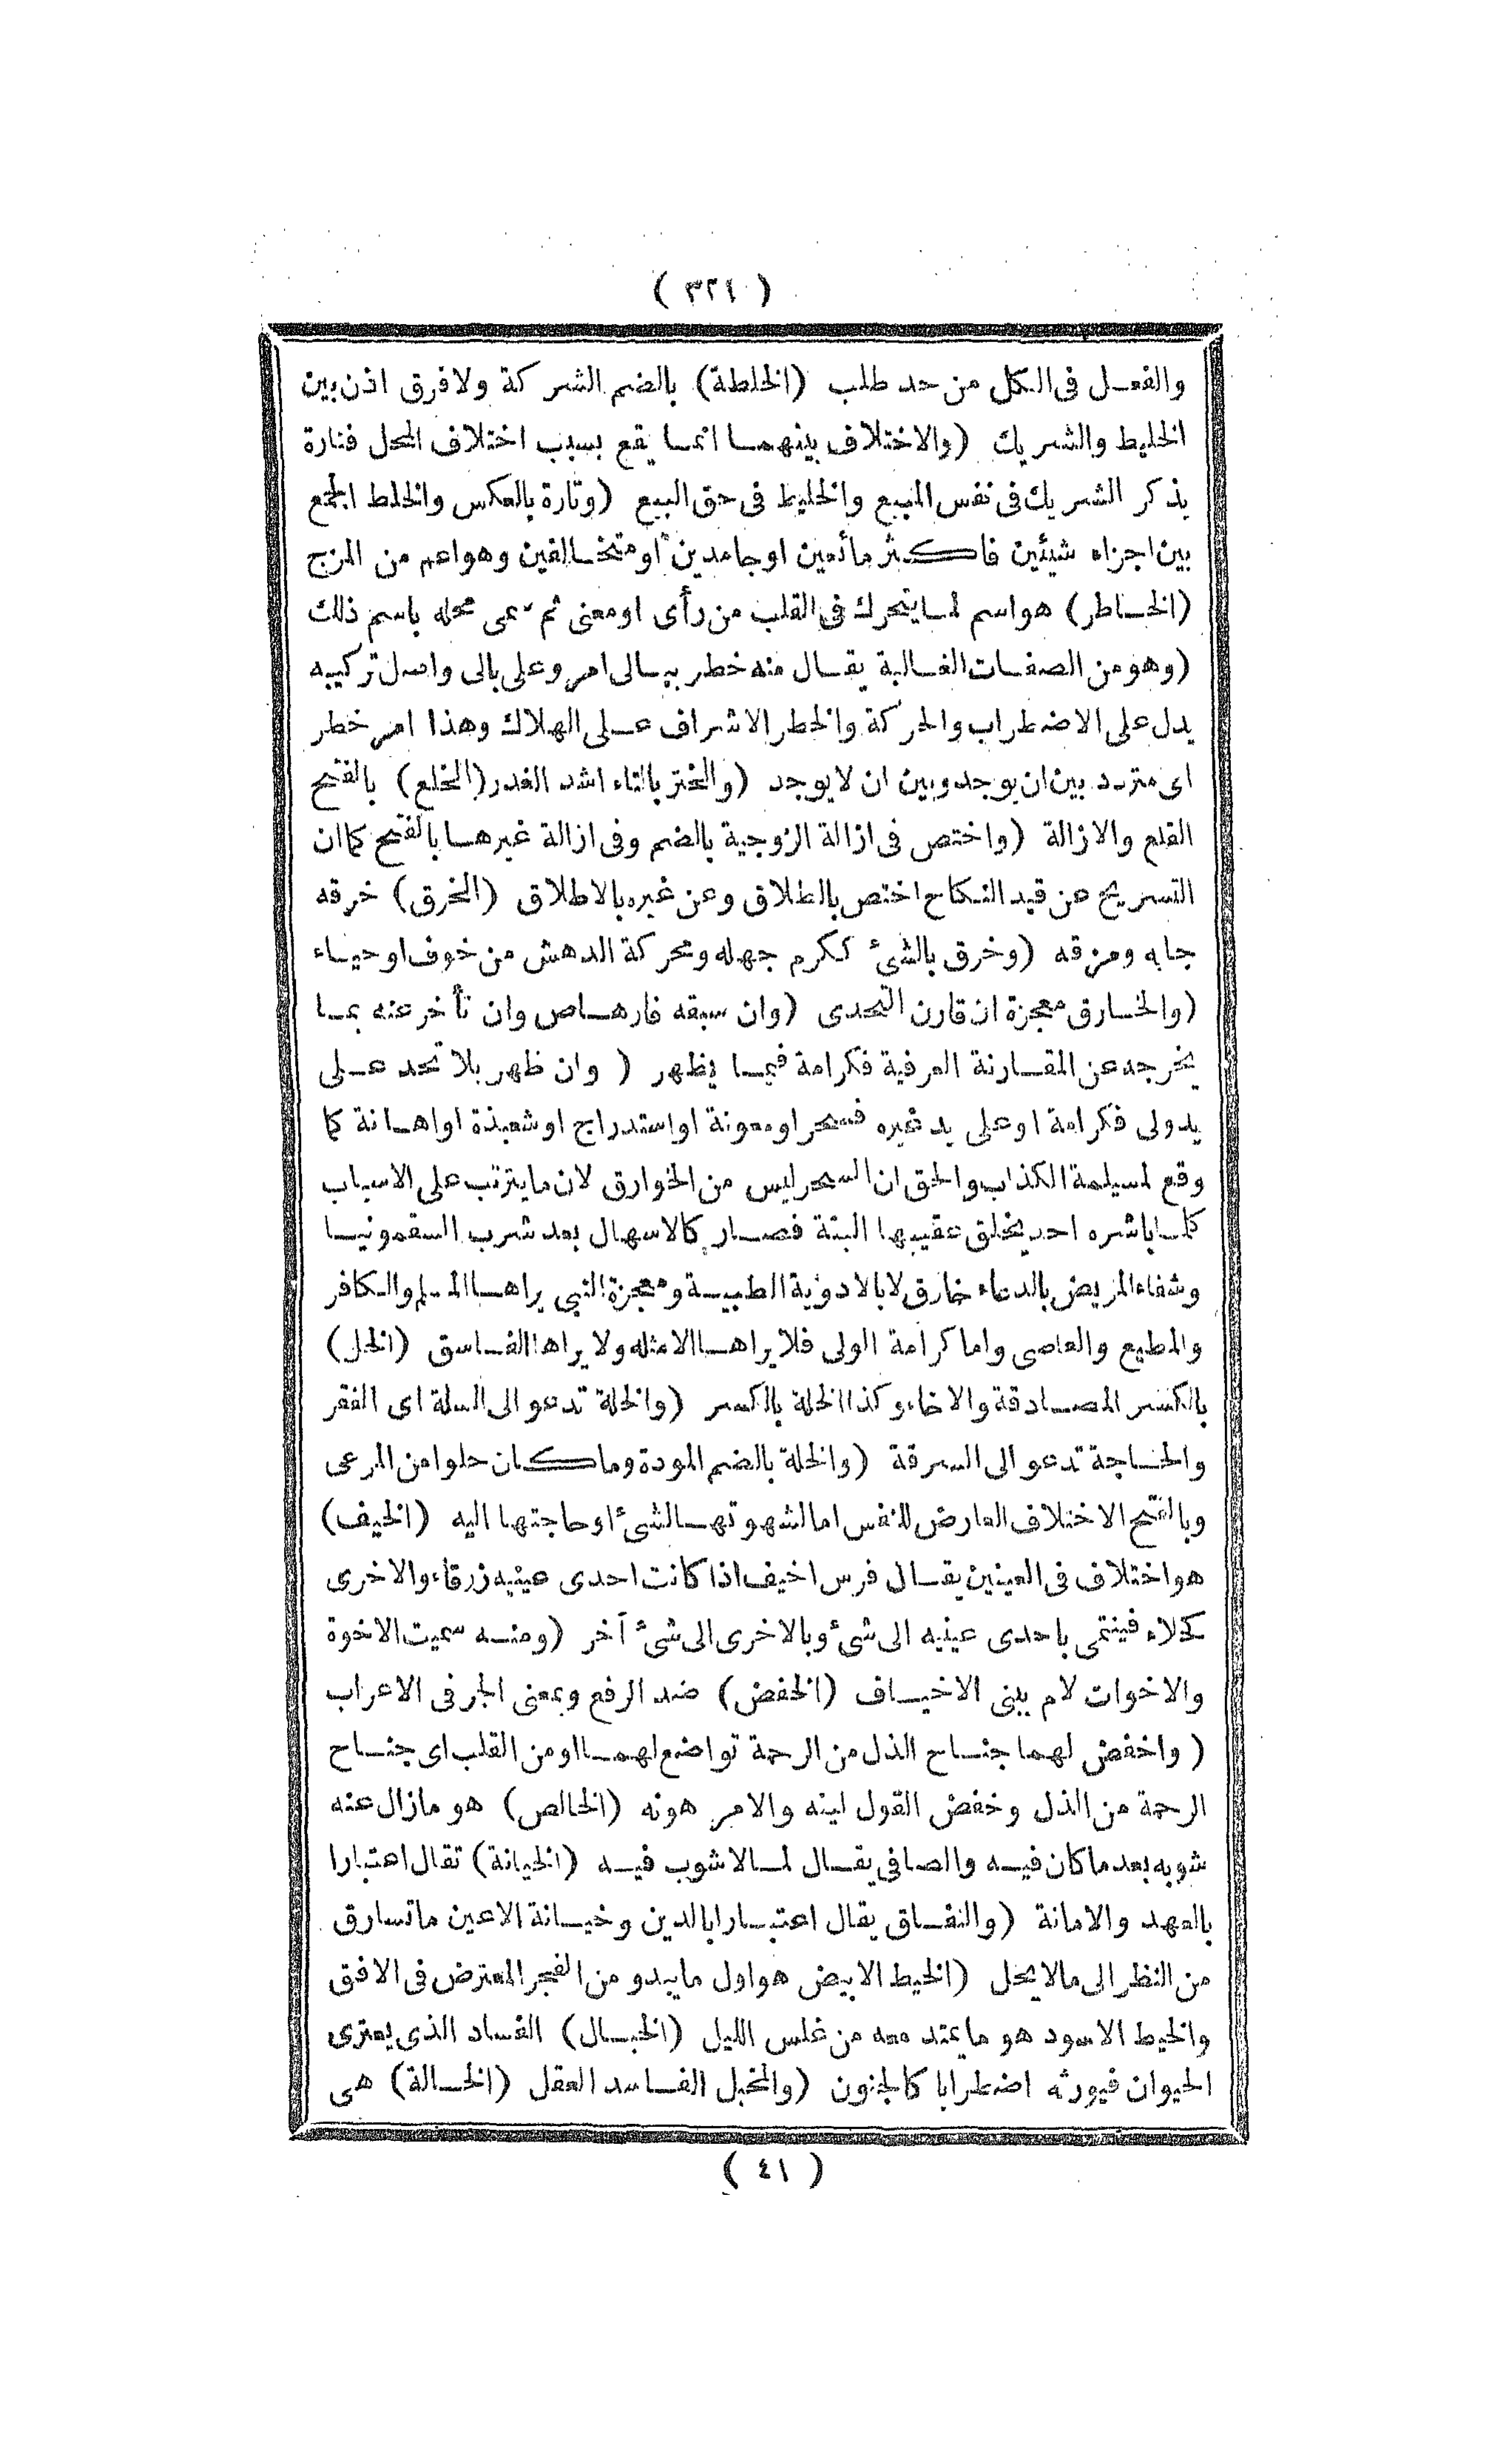 ( ٣٢١ )
والفعل فى الكل من حد طلب (الخلطة) بالضم الشركة ولا فرق اذن بين
الخليط والشريك (والاختلاف بينهما انما يقع بسبب اختلاف المحل فتارة
يذكر الشريك فى نفس المبيع والخليط فى حق البيع (وتارة بالعكس والخلط الجمع
بين اجزاء شيئين فاكثر مائعين او جامدين او متخالفين وهو اعم من المزج
(الخاطر) هو اسم لما يتحرك فى القلب من رأى او معنى ثم سمى محله باسم ذلك
(وهو من الصفات الغالبة يقال منه خطر ببالى امر وعلى بالى واصل تركيبه
يدل على الاضطراب والحركة والخطر الاشراف على الهلاك وهذا امر خطر
اى متردد بين ان يوجد وبين ان لا يوجد (والختر بالتاء اشد الغدر (الخلع) بالفتح
القلع والازالة (واختص فى ازالة الزوجية بالضم وفى ازالة غيرها بالفتح كما ان
التسريح عن قيد النكاح اختص بالطلاق وعن غيره بالاطلاق (الخرق) خرقه
جابه ومزقه (وخرق بالشئ ككرم جهله ومحركة الدهش من خوف او حياء
(والخارق معجزة ان قارن التحدى (وان سبقه فارهاص وان تأخر عنه بما
يخرجه عن المقارنة العرفية فكرامة فيما يظهر ( وان ظهر بلا تحد على
يد ولى فكرامة او على يد غيره فسحر او معونة او استدراج او شعبذة او اهانة كما
وقع لمسيلمة الكذاب والحق ان السحر ليس من الخوارق لان ما يترتب على الاسباب
كلما باشره احد يخلق عقيبها البتة فصار كالاسهال بعد شرب السقمونيا
وشفاء المريض بالدعاء خارق لا بالادوية الطبية ومعجزة النبى يراها المسلم والكافر
والمطيع والعاصى واما كرامة الولى فلا يراها الا مثله ولا يراها الفاسق (الخل)
بالكسر المصادقة والاخاء وكذا الخلة بالكسر (والخلة تدعو الى السلة اى الفقر
والحاجة تدعو الى السرقة (والخلة بالضم المودة وما كان حلوا من المرعى
وبالفتح الاختلاف العارض للنفس اما لشهوتها لشئ او حاجتها اليه (الخيف)
هو اختلاف فى العينين يقال فرس اخيف اذا كانت احدى عينيه زرقاء والاخرى
كحلاء فينتمى باحدى عينيه الى شئ وبالاخرى الى شئ آخر (ومنه سميت الاخوة
والاخوات لام بنى الاخياف (الخفض) ضد الرفع وبمعنى الجر فى الاعراب
( واخفض لهما جناح الذل من الرحمة تواضع لهما او من القلب اى جناح
الرحمة من الذل وخفض القول لينه والامر هونه (الخالص) هو ما زال عنه
شوبه بعد ما كان فيه والصافى يقال لما لا شوب فيه (الخيانة) تقال اعتبارا
بالعهد والامانة (والنفاق يقال اعتبارا بالدين وخيانة الاعين ما تسارق
من النظر الى ما لا يحل (الخيط الابيض هو اول ما يبدو من الفجر المعترض فى الافق
والخيط الاسود هو ما يمتد معه من غلس الليل (الخبال) الفساد الذى يعترى
الحيوان فيورثه اضطرابا كالجنون (والمخبل الفاسد العقل (الخالة) هى
( ٤١ )